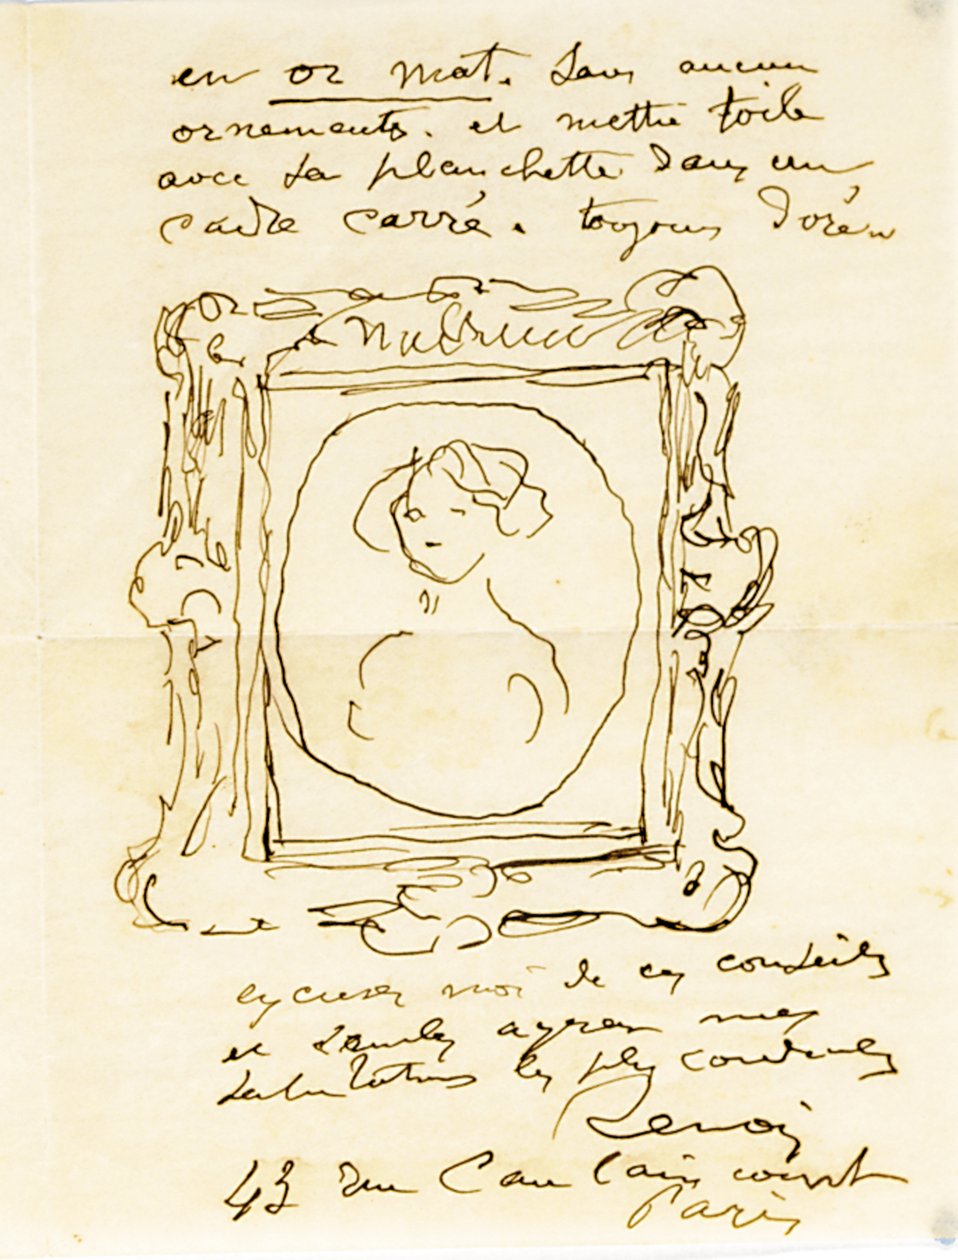 en or mat. sans aucun
ornements. et mettre toile
avec sa planchette dans un
cadre carré. toujours doré
excuser moi de ces conseils
et veuillez agreer mes
salutations les plus cordiales
Renoir
43 rue Caulaincourt
Paris